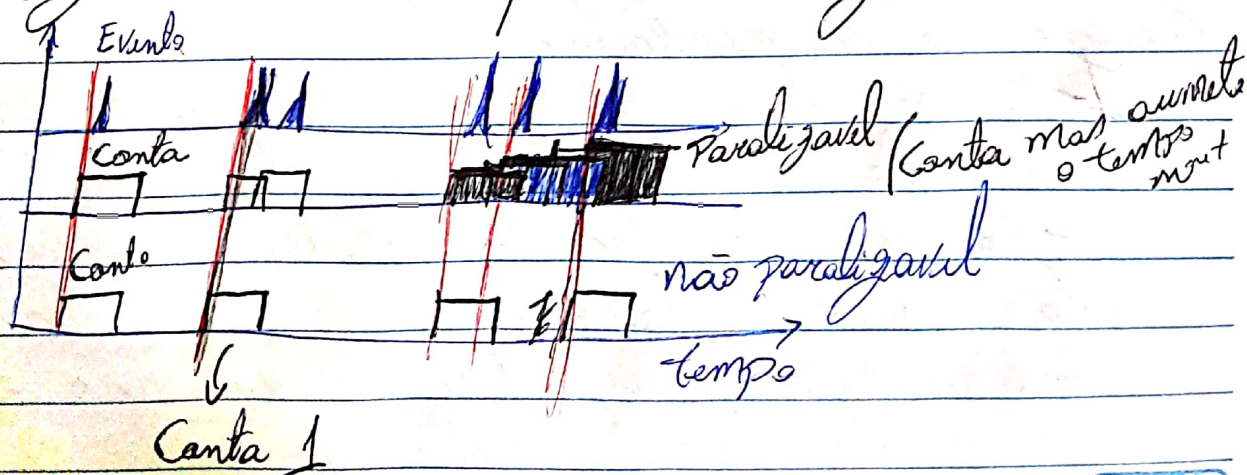 Evento
Conta
Paralizavel (Conta mas aumeta
o tempo
mort
Conta
não paralizavel
tempo
Conta 1